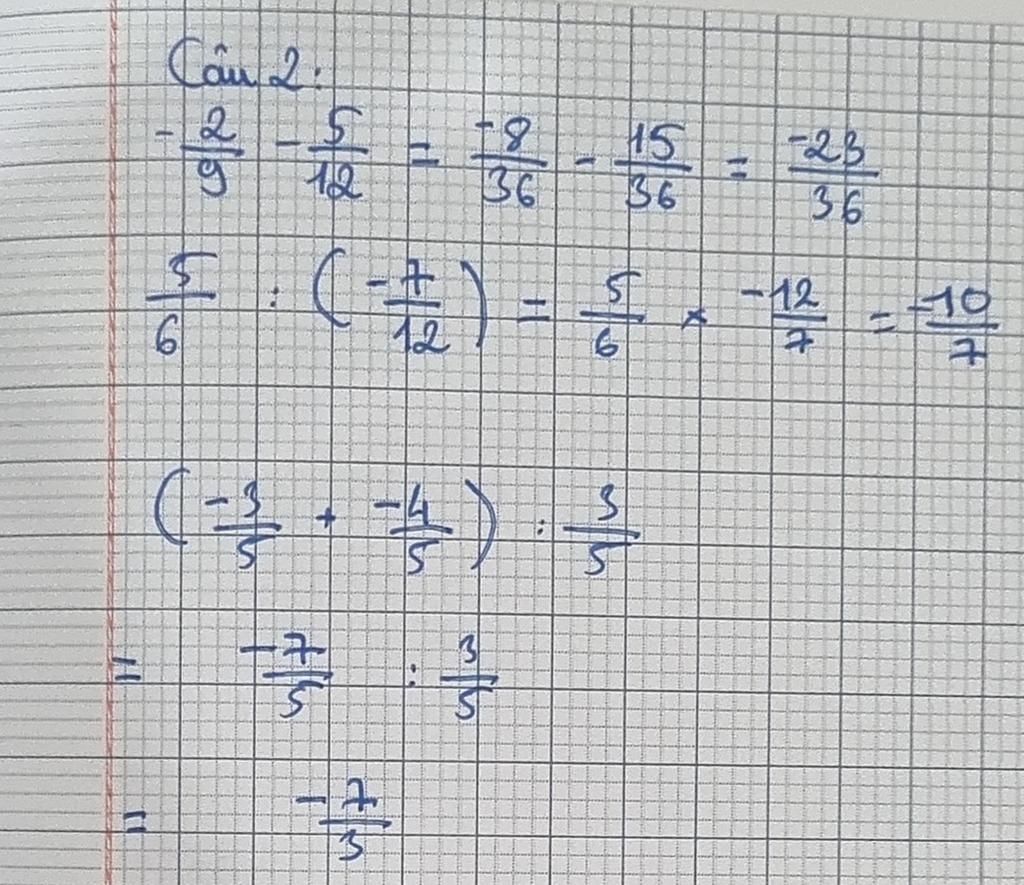 Câu 2:
-2/9 - 5/12 = -8/36 - 15/36 = -23/36
5/6 : (-7/12) = 5/6 × -12/7 = -10/7
(-3/5 + -4/5) : 3/5
= -7/5 : 3/5
= -7/3